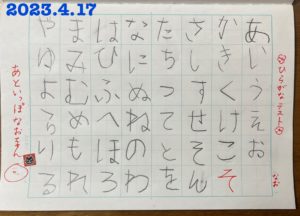 2023.4.17
ひらがなテスト
なお
あいうえお
かきくけこそ
さしすせそん
たちつてとを
なにぬねのわ
はひふへほろ
まみむめもれ
やゆよらりる
あといっぽなおさん